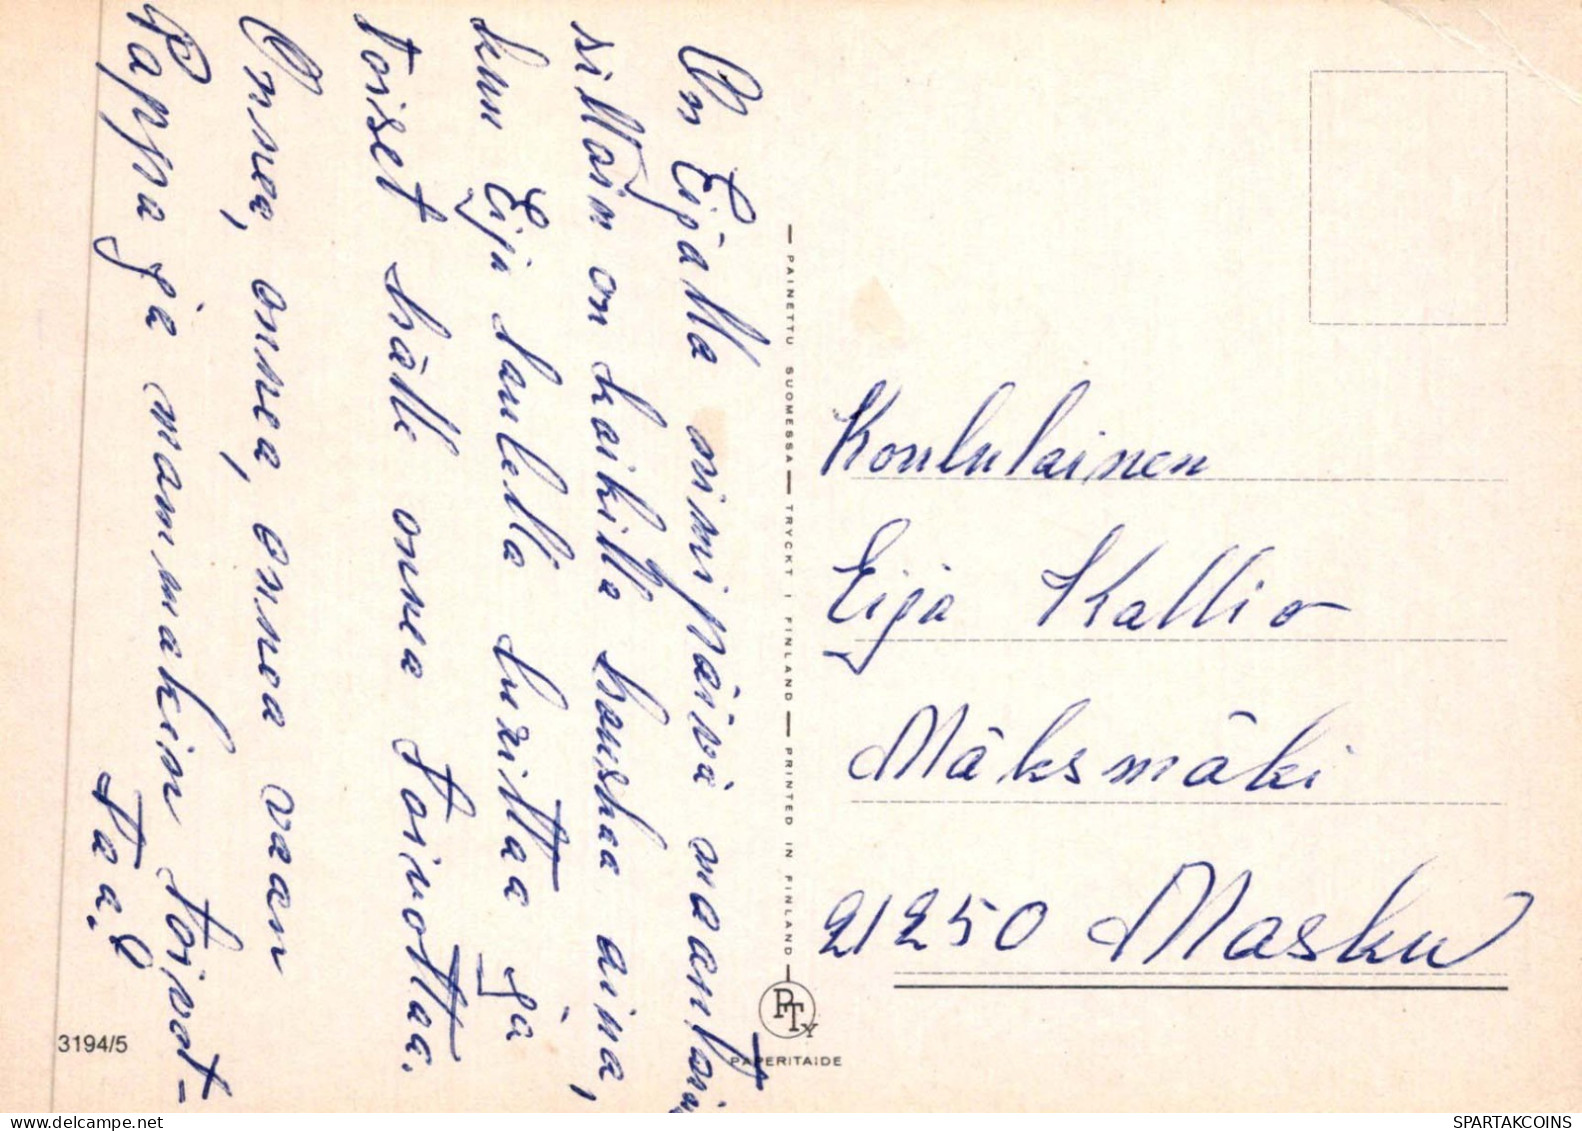 On Eijalla nimipäivä maantain
silloin on kaikilla hauskaa aina,
kun Eija laulella lurittaa ja
toiset hälle onnea toivottaa.
Onnea, onnea, onnea vaan
Pappa ja mammakin toivot-
taa.!
PAINETTU SUOMESSA — TRYCKT I FINLAND — PRINTED IN FINLAND
PTY
PAPERITAIDE
Koululainen
Eija Kallio
Mäksmäki
21250 Masku
3194/5
SPARTAKCOINS
www.delcampe.net